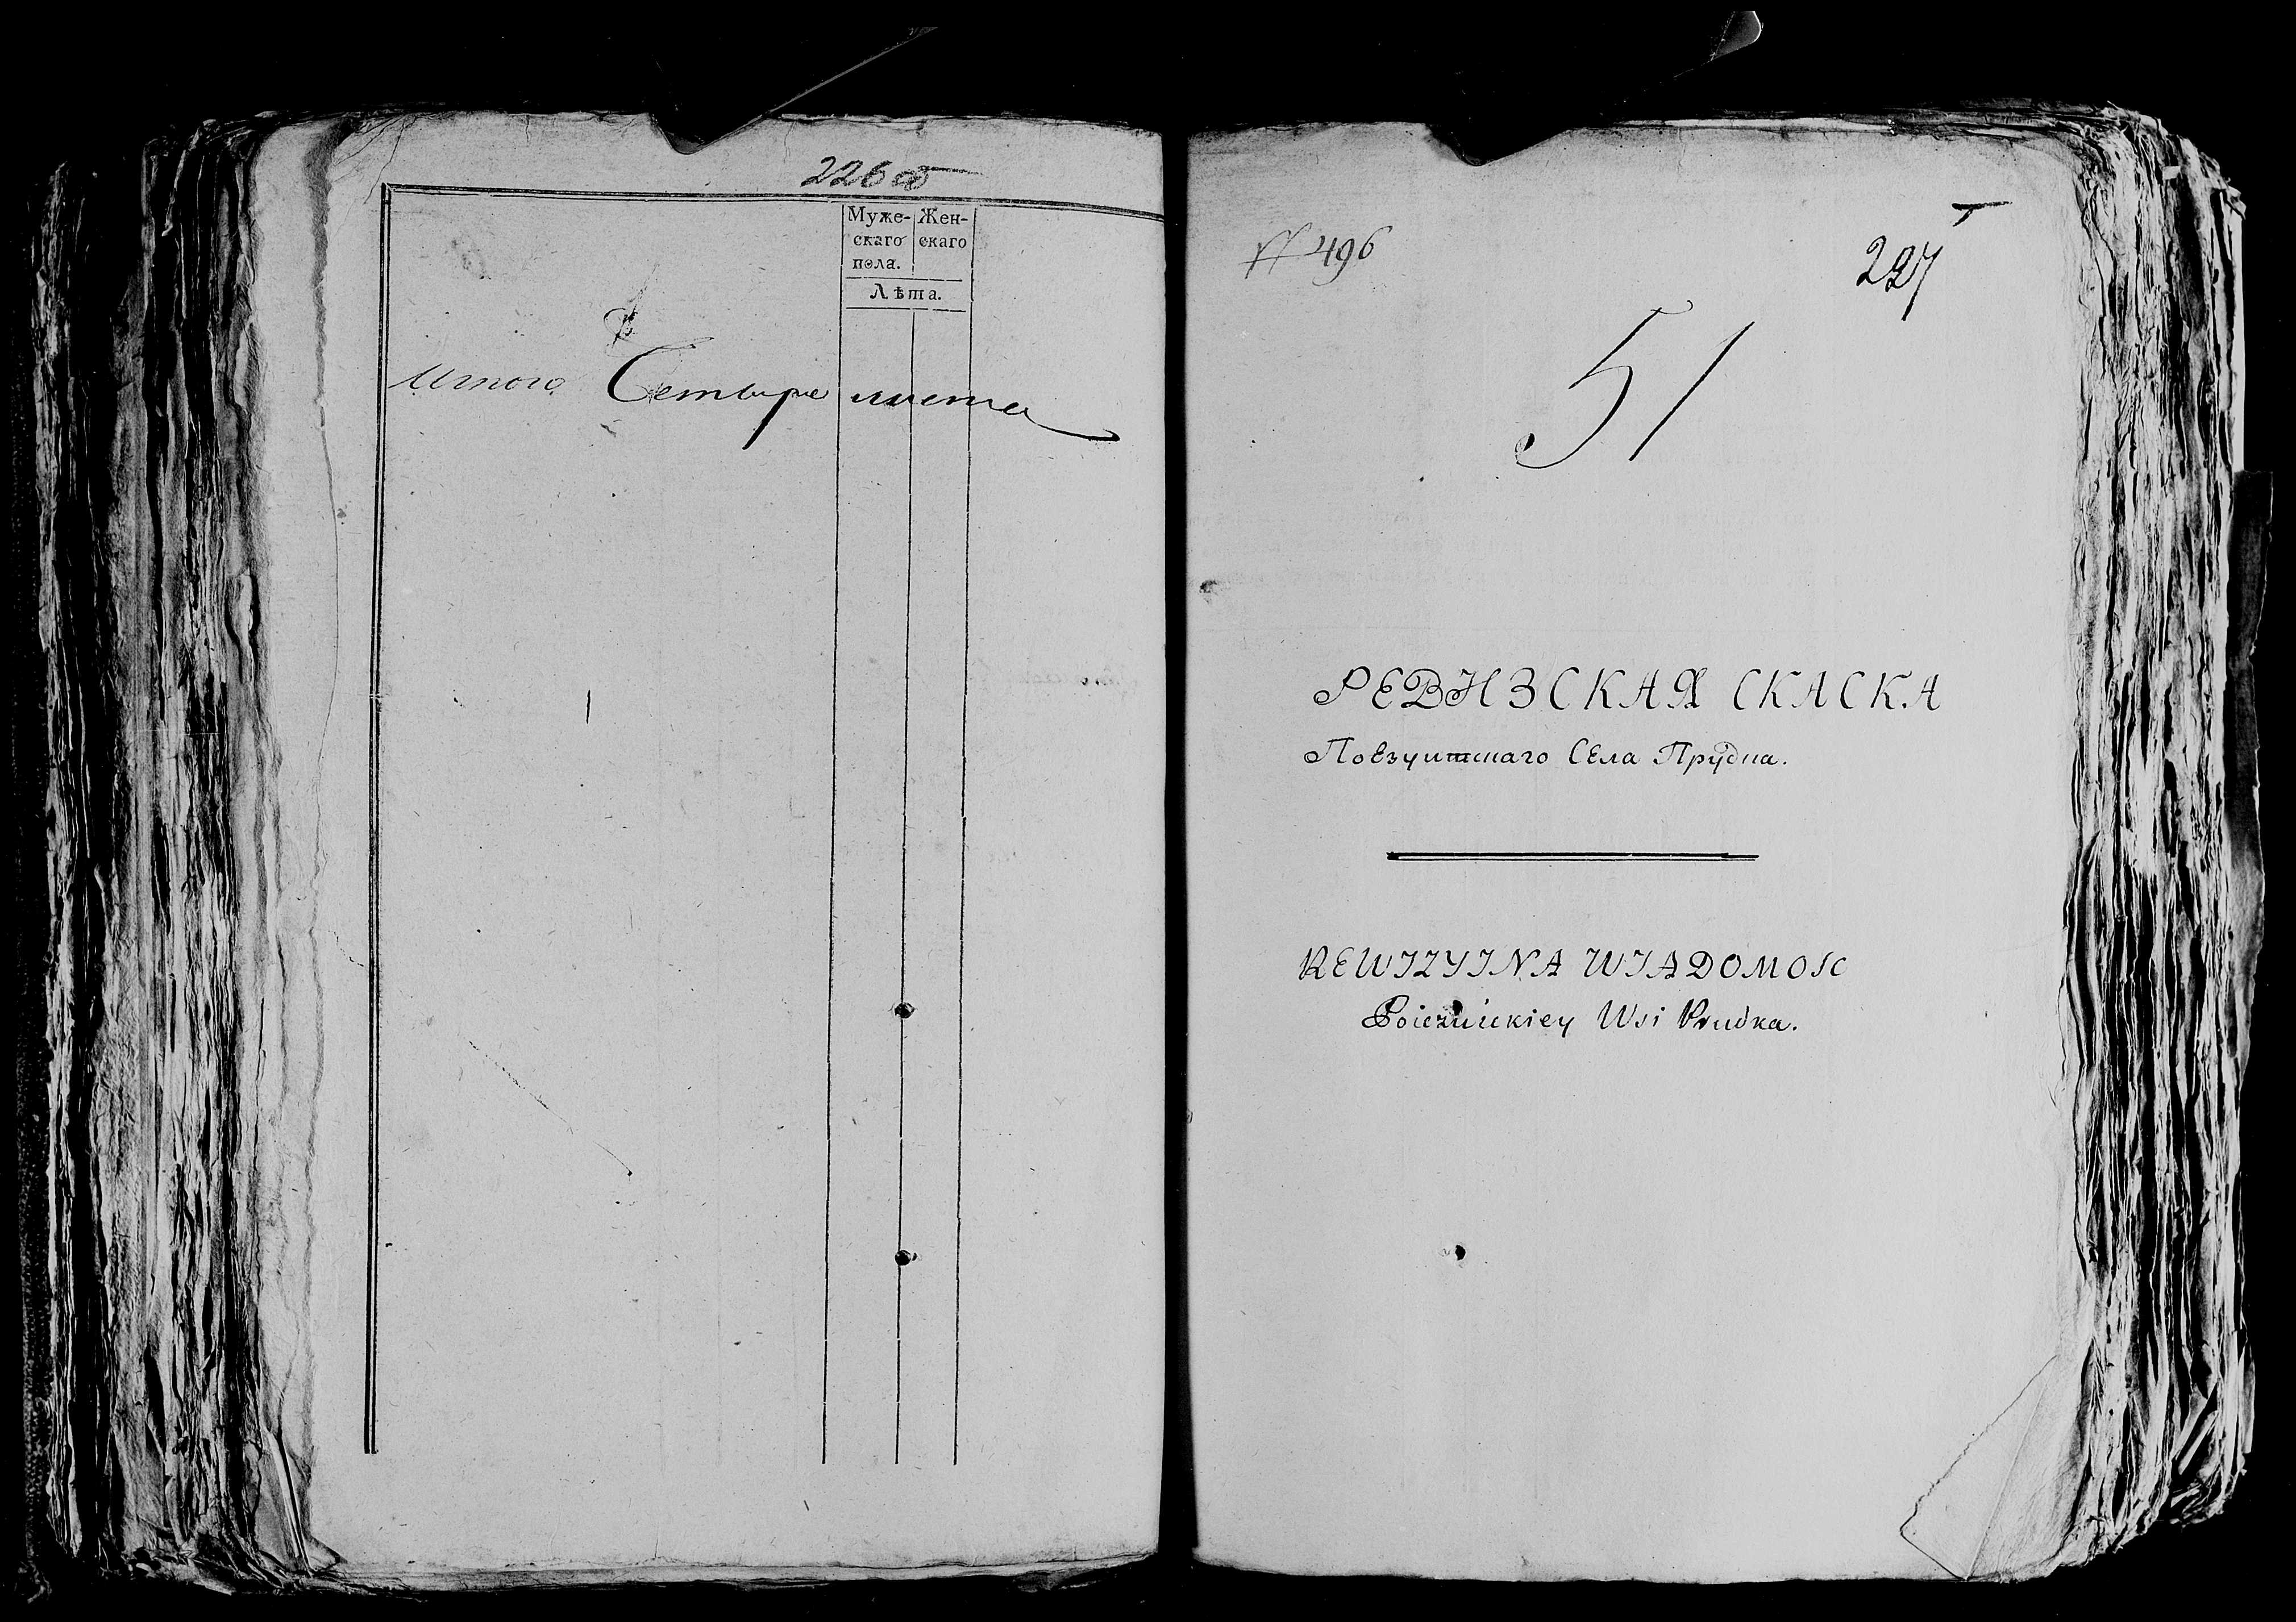 226 об
Муже- Жен-
скаго скаго
пола.
Лѣта.
Итого Четыре листа
№ 496
227
51
РЕВИЗСКАЯ СКАСКА
Поезуитскаго Села Прудка.
REWIZYINA WIADOMOSC
Poiezuickiey Wsi Prudka.